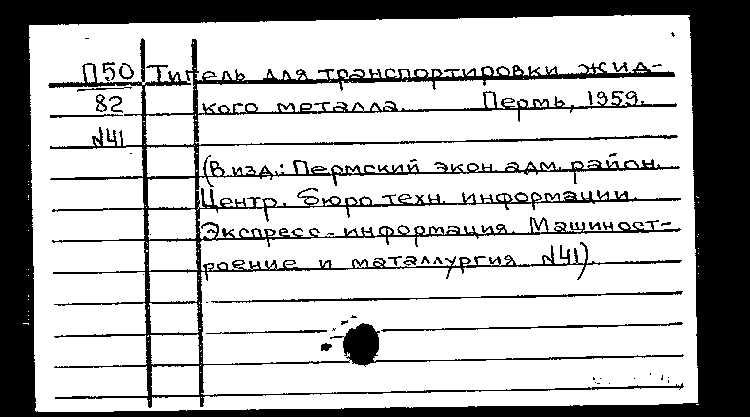 П50 Тигель для транспортировки жид-
82 кого металла. Пермь, 1959.
№41
(В изд.: Пермский экон. адм. район.
Центр. бюро техн. информации.
Экспресс-информация. Машиност-
роение и маталлургия №41).